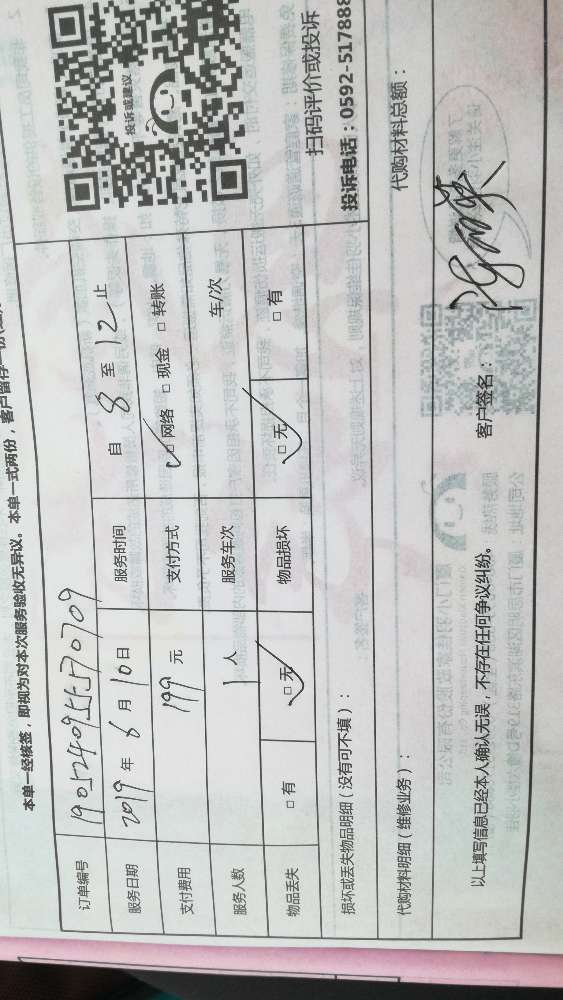 本单一经核签，即视为对本次服务验收无异议。本单一式两份，客户留存一份
订单编号 1905240955570709
服务日期 2019年 6月 10日 服务时间 自 8 至 12 止
支付费用 199 元 支付方式 ☑网络 □现金 □转账
服务人数 1 人 服务车次 车/次
物品丢失 □有 ☑无 物品损坏 ☑无 □有
投诉或建议
扫码评价或投诉
投诉电话：0592-517888
损坏或丢失物品明细（没有可不填）：
代购材料明细（维修业务）： 代购材料总额：
以上填写信息已经本人确认无误，不存在任何争议纠纷。 客户签名：